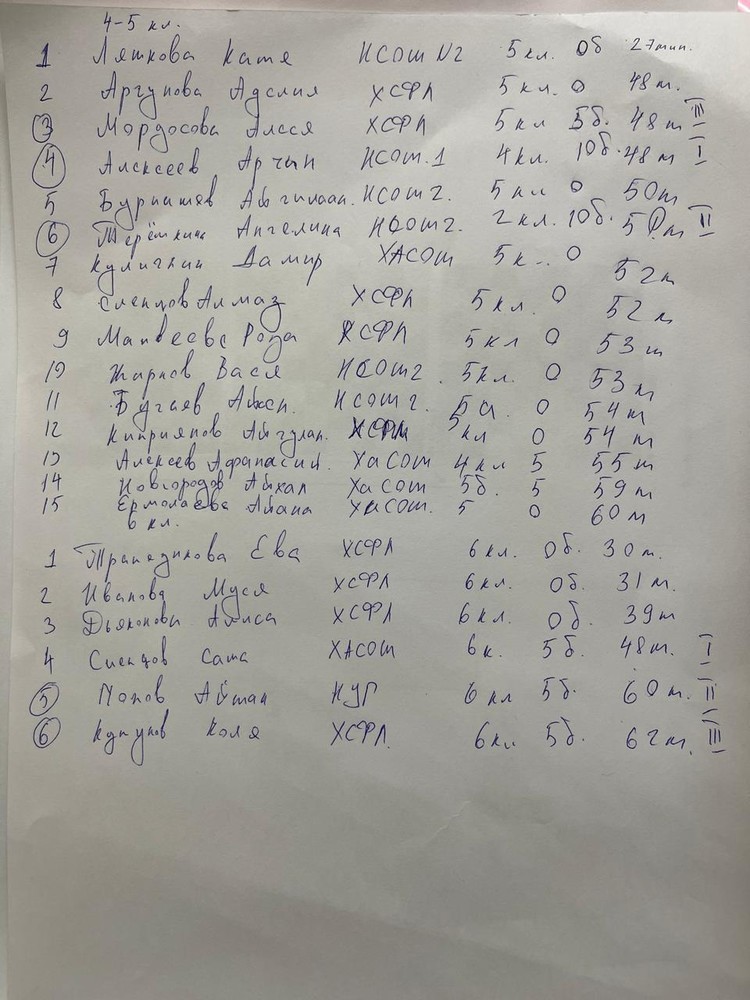 4-5 кл.
1 Ляшкова Катя НСОШ №2 5 кл. 0б 27мин.
2 Аргунова Аделия ХСФЛ 5 кл. 0 48 м.
3 Мордосова Алеся ХСФЛ 5 кл 5б. 48 м III
4 Алексеев Арчын НСОШ.1 4 кл. 10б. 48 м I
5 Бурнашев НСОШ 2. 5 кл 0 50 м
6 Терёшкина Ангелина НСОШ 2. 2 кл. 10б. 50 м II
7 Куличкин Дамир ХАСОШ 5 к. 0 52 м
8 Слепцов Алмаз ХСФЛ 5 кл. 0 52 м
9 Матвеева Рода ХСФЛ 5 кл 0 53 м
10 Жирков Вася НСОШ 2 5 кл. 0 53 м
11 Бугаев Айсен. НСОШ 2. 5 кл. 0 54 м
12 Киприянов Айгулан. ХСФЛ 5 кл 0 54 м
13 Алексеев Афанасий. ХаСОШ 4 кл 5 55 м
14 Новгородов Айхал ХаСОШ 5б. 5 59 м
15 Ермолаева Айана ХаСОШ. 5 0 60 м
6 кл.
1 Трапедикова Ева ХСФЛ 6 кл. 0б. 30 м.
2 Иванова Муся ХСФЛ 6 кл. 0б. 31 м.
3 Дьяконова ХСФЛ 6 кл. 0б. 39 м
4 Слепцов Саша ХАСОШ 6 к. 5б. 48 м. I
5 Попов Айтал НУГ 6 кл 5б. 60 м. II
6 Коля ХСФЛ. 6 кл 5б. 62 м. III